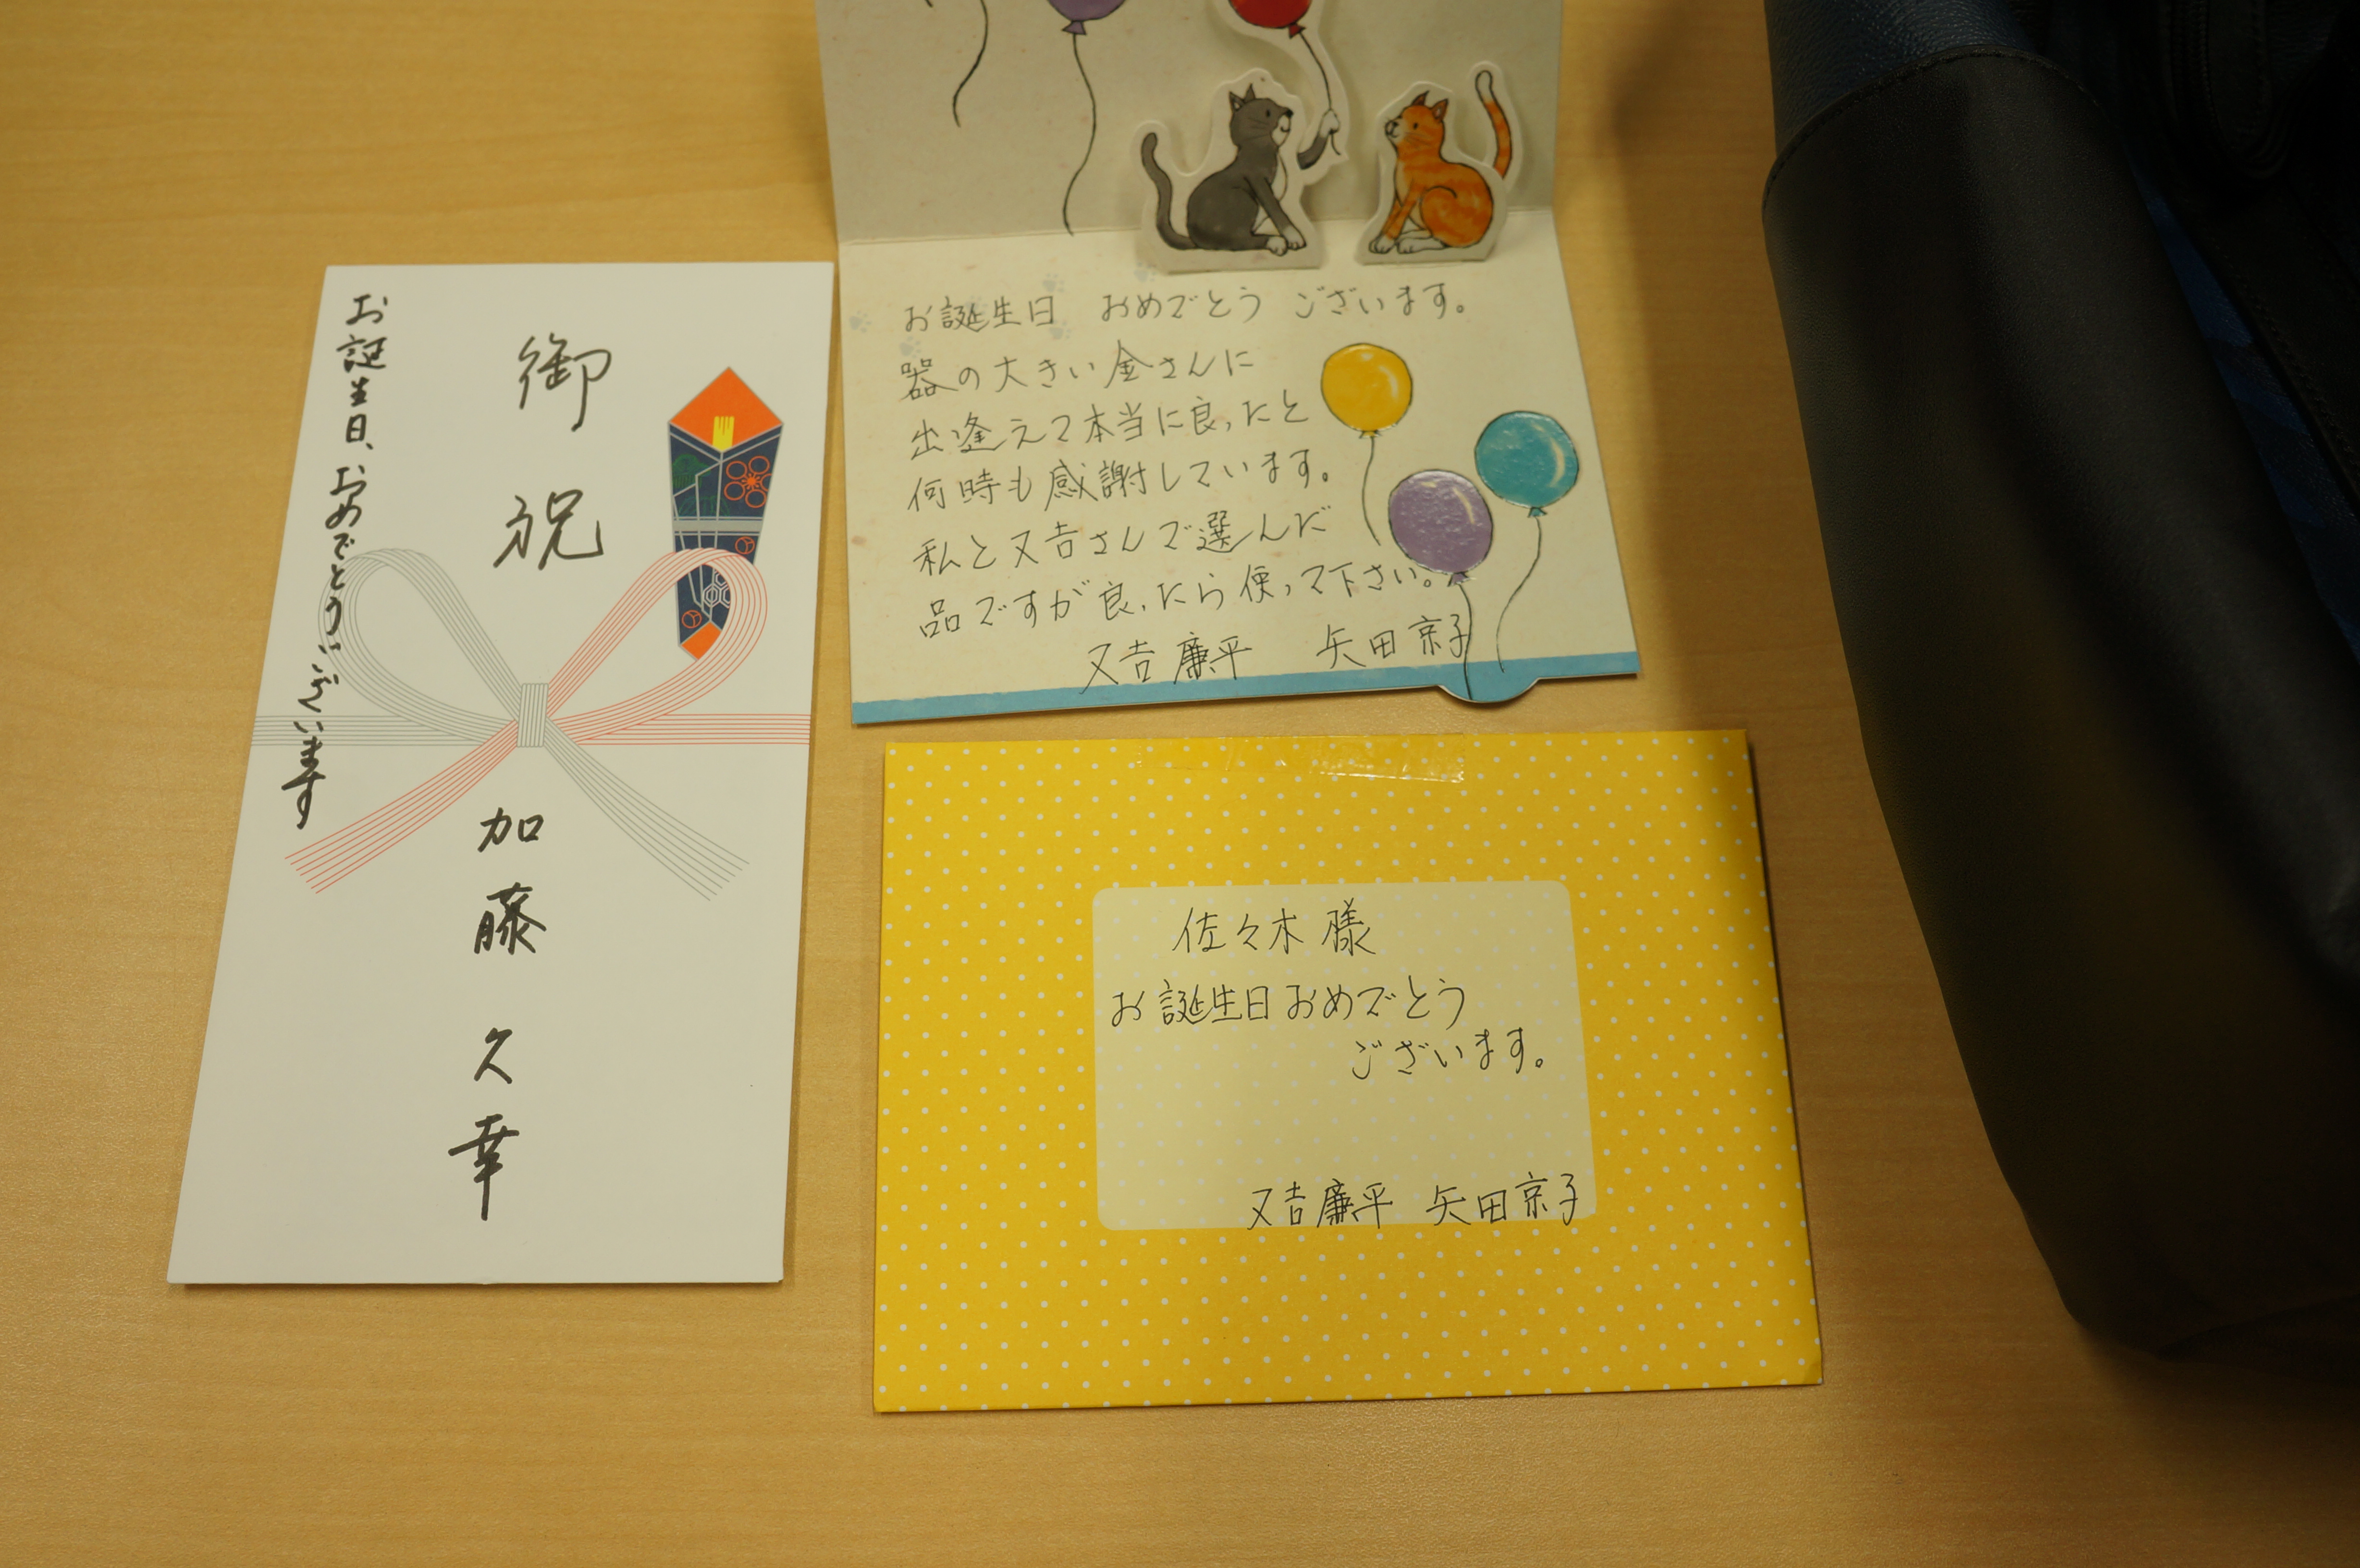 お誕生日、おめでとうございます
御祝
加藤久幸
お誕生日 おめでとう ございます。
器の大きい金さんに
出逢えて本当に良かったと
何時も感謝しています。
私と又吉さんで選んだ
品ですが良かったら使って下さい。
又吉廉平 矢田京子
佐々木様
お誕生日おめでとう
ございます。
又吉廉平 矢田京子